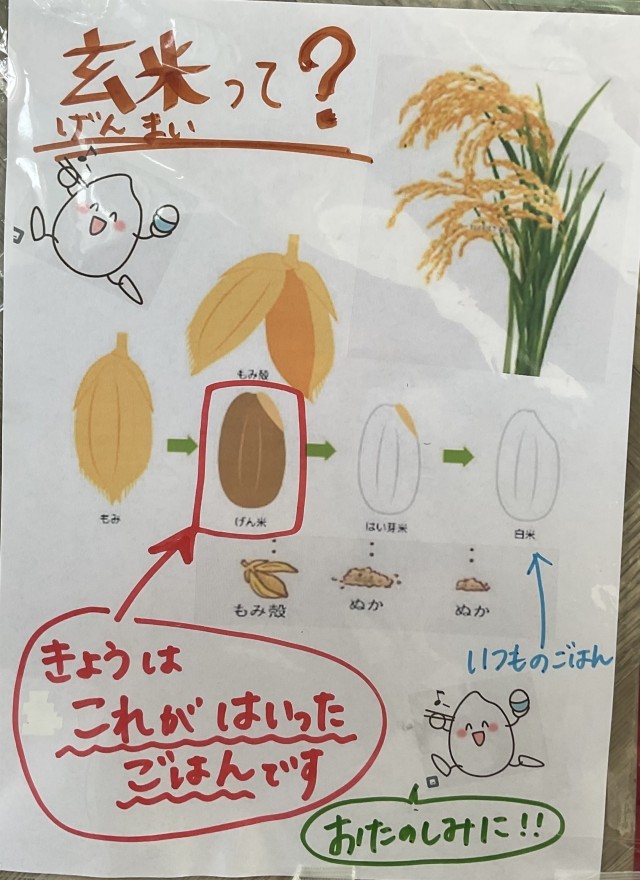 玄米って?
げんまい
もみ殻
もみ
げん米
はい芽米
白米
もみ殻
ぬか
ぬか
いつものごはん
きょうは
これが はいった
ごはんです
おたのしみに!!